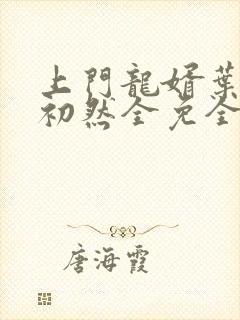 上門龍婿葉
初然全免全
唐海霞